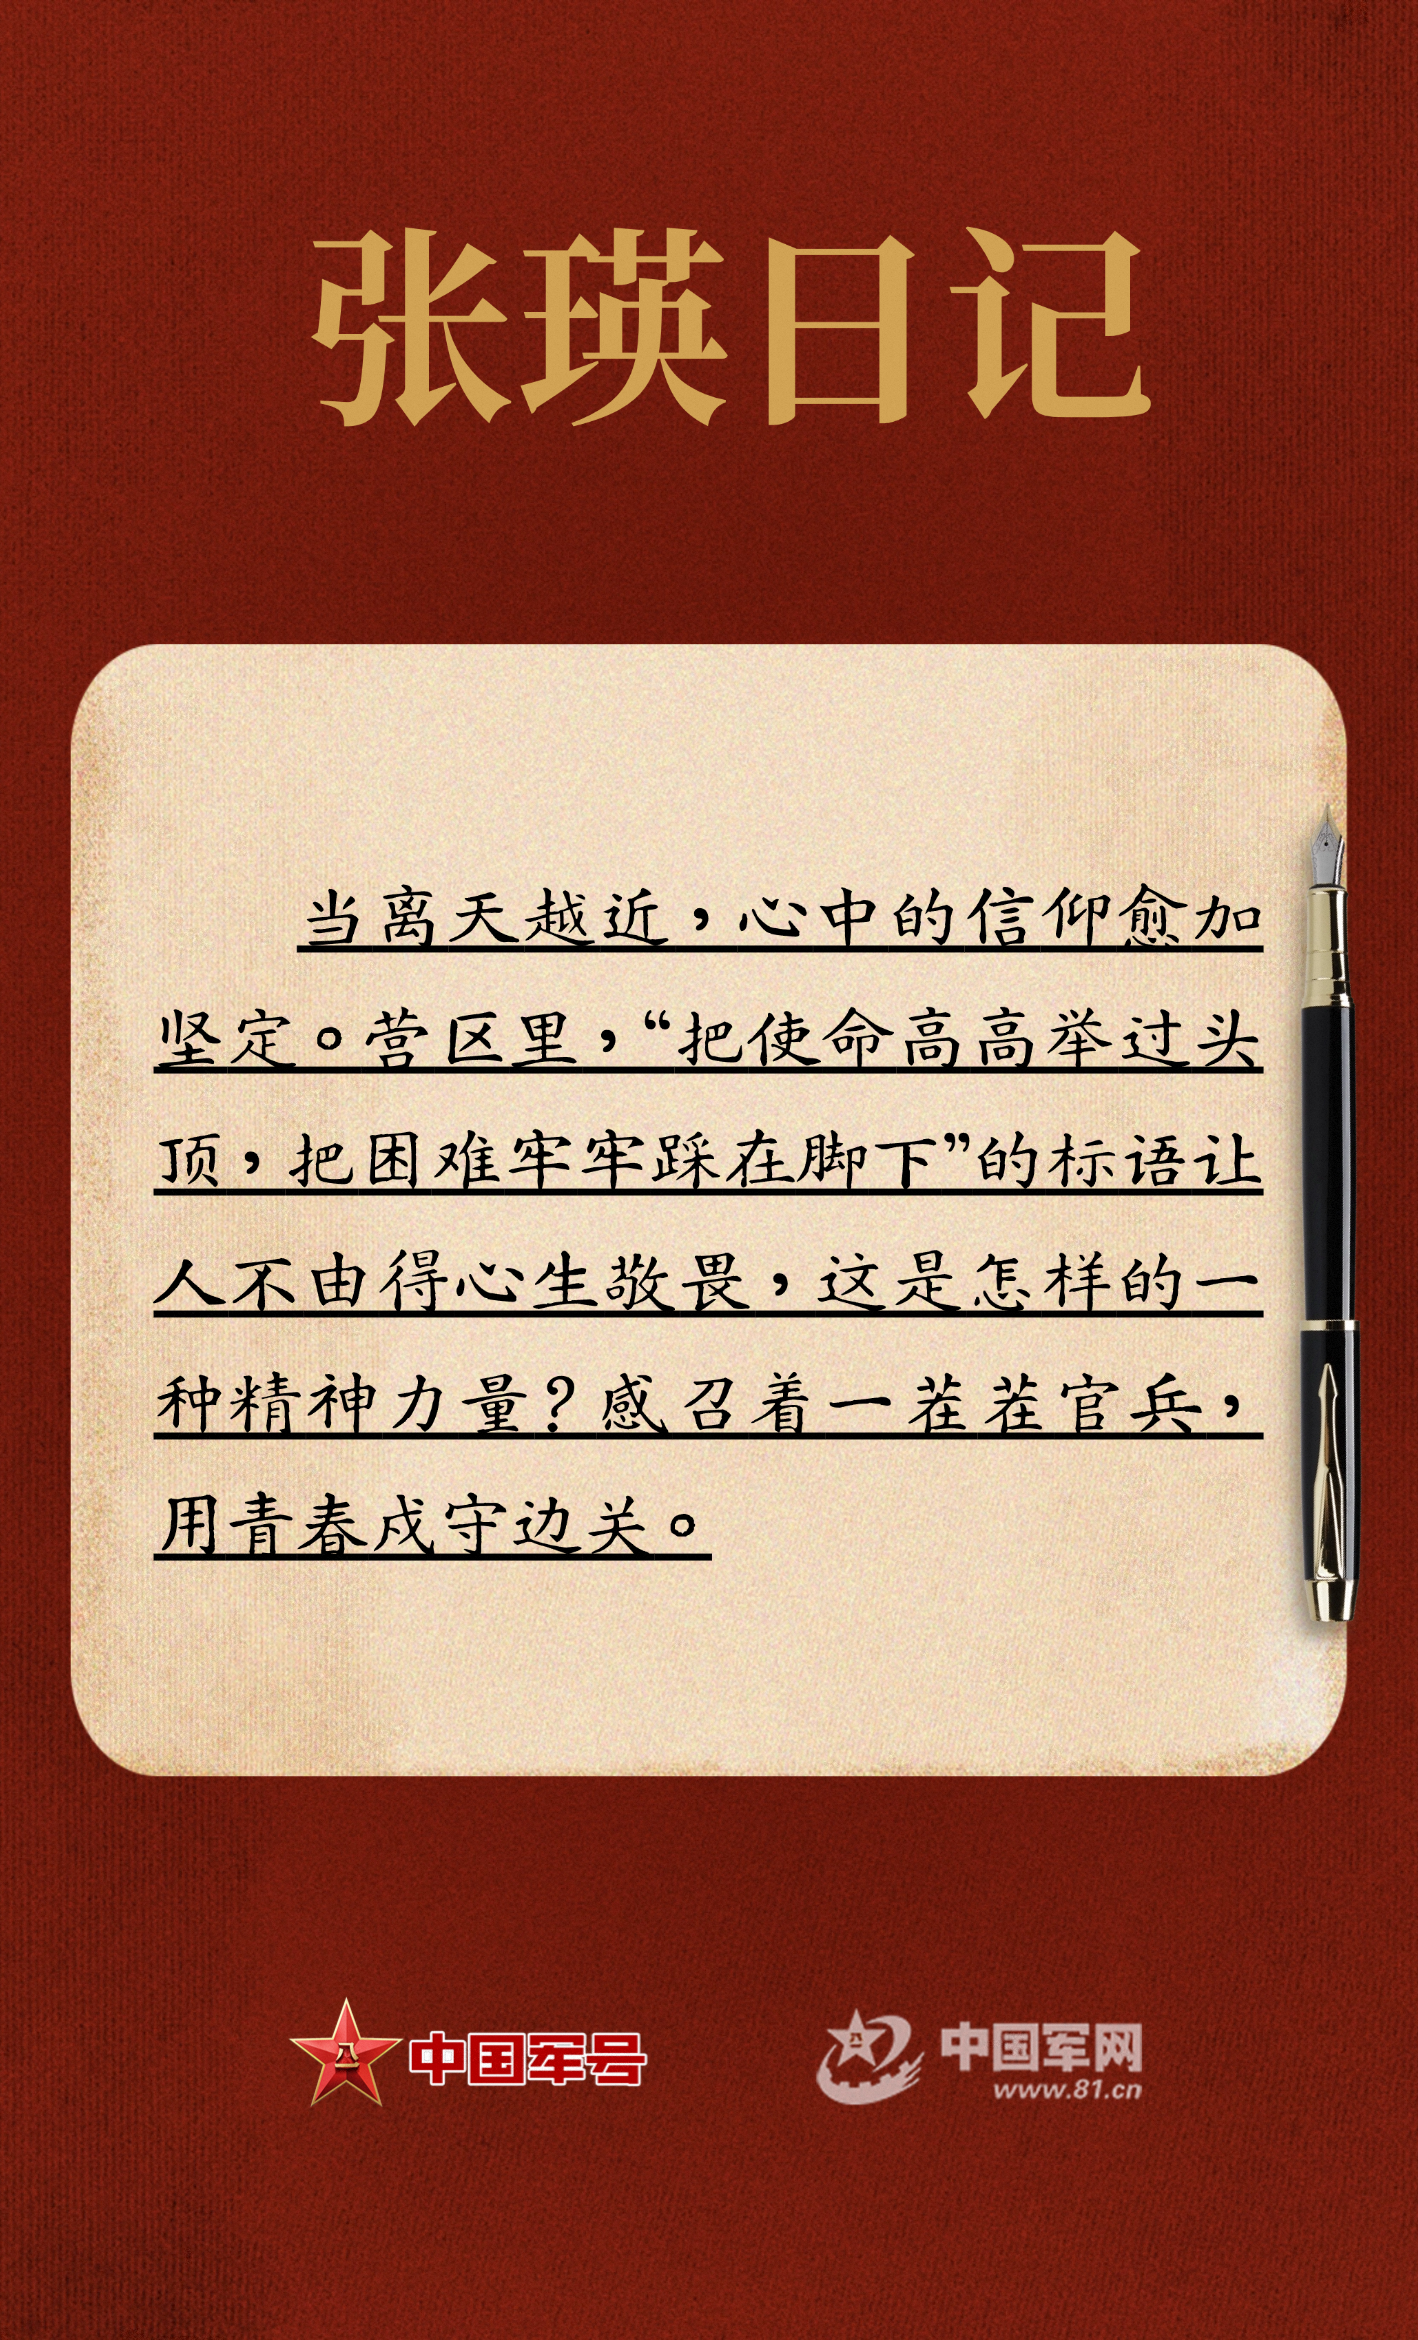 张瑛日记
当离天越近，心中的信仰愈加
坚定。营区里，“把使命高高举过头
顶，把困难牢牢踩在脚下”的标语让
人不由得心生敬畏，这是怎样的一
种精神力量？感召着一茬茬官兵，
用青春戍守边关。
八一
中国军号
八一
中国军网
www.81.cn